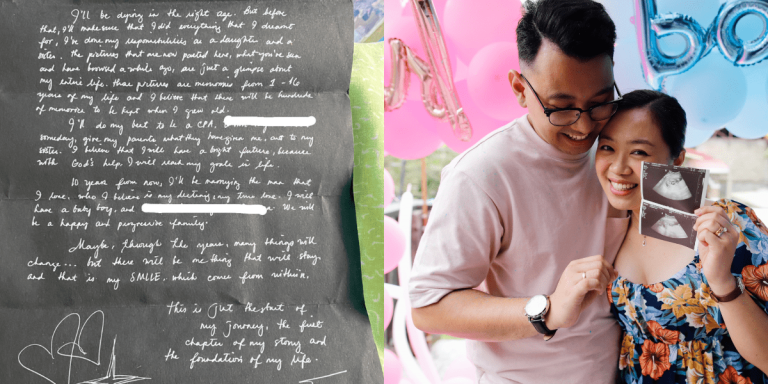 I'll be dying in the right age. But before
that, I'll make sure that I did everything that I dreamt
for, I've done my responsibilities as a daughter and a
sister. The pictures that are now posted here, what you've seen
and have browsed a while ago, are just a glimpse about
my entire life. These pictures are memories from 1 - 16
years of my life and I believe that there will be hundreds
of memories to be kept when I grew old.
I'll do my best to be a CPA
someday, give my parents what they have given me, and to my
sister. I believe that I will have a bright future, because
with God's help I will reach my goals in life.
10 years from now, I'll be marrying the man that
I love, who I believe is my destiny, my true love. I will
have a baby boy, and We will
be a happy and progressive family.
Maybe, through the years, many things will
change... but there will be one thing that will stay,
and that is my SMILE, which come from within.
This is just the start of
my journey, the first
chapter of my story and
the foundation of my life.
bo